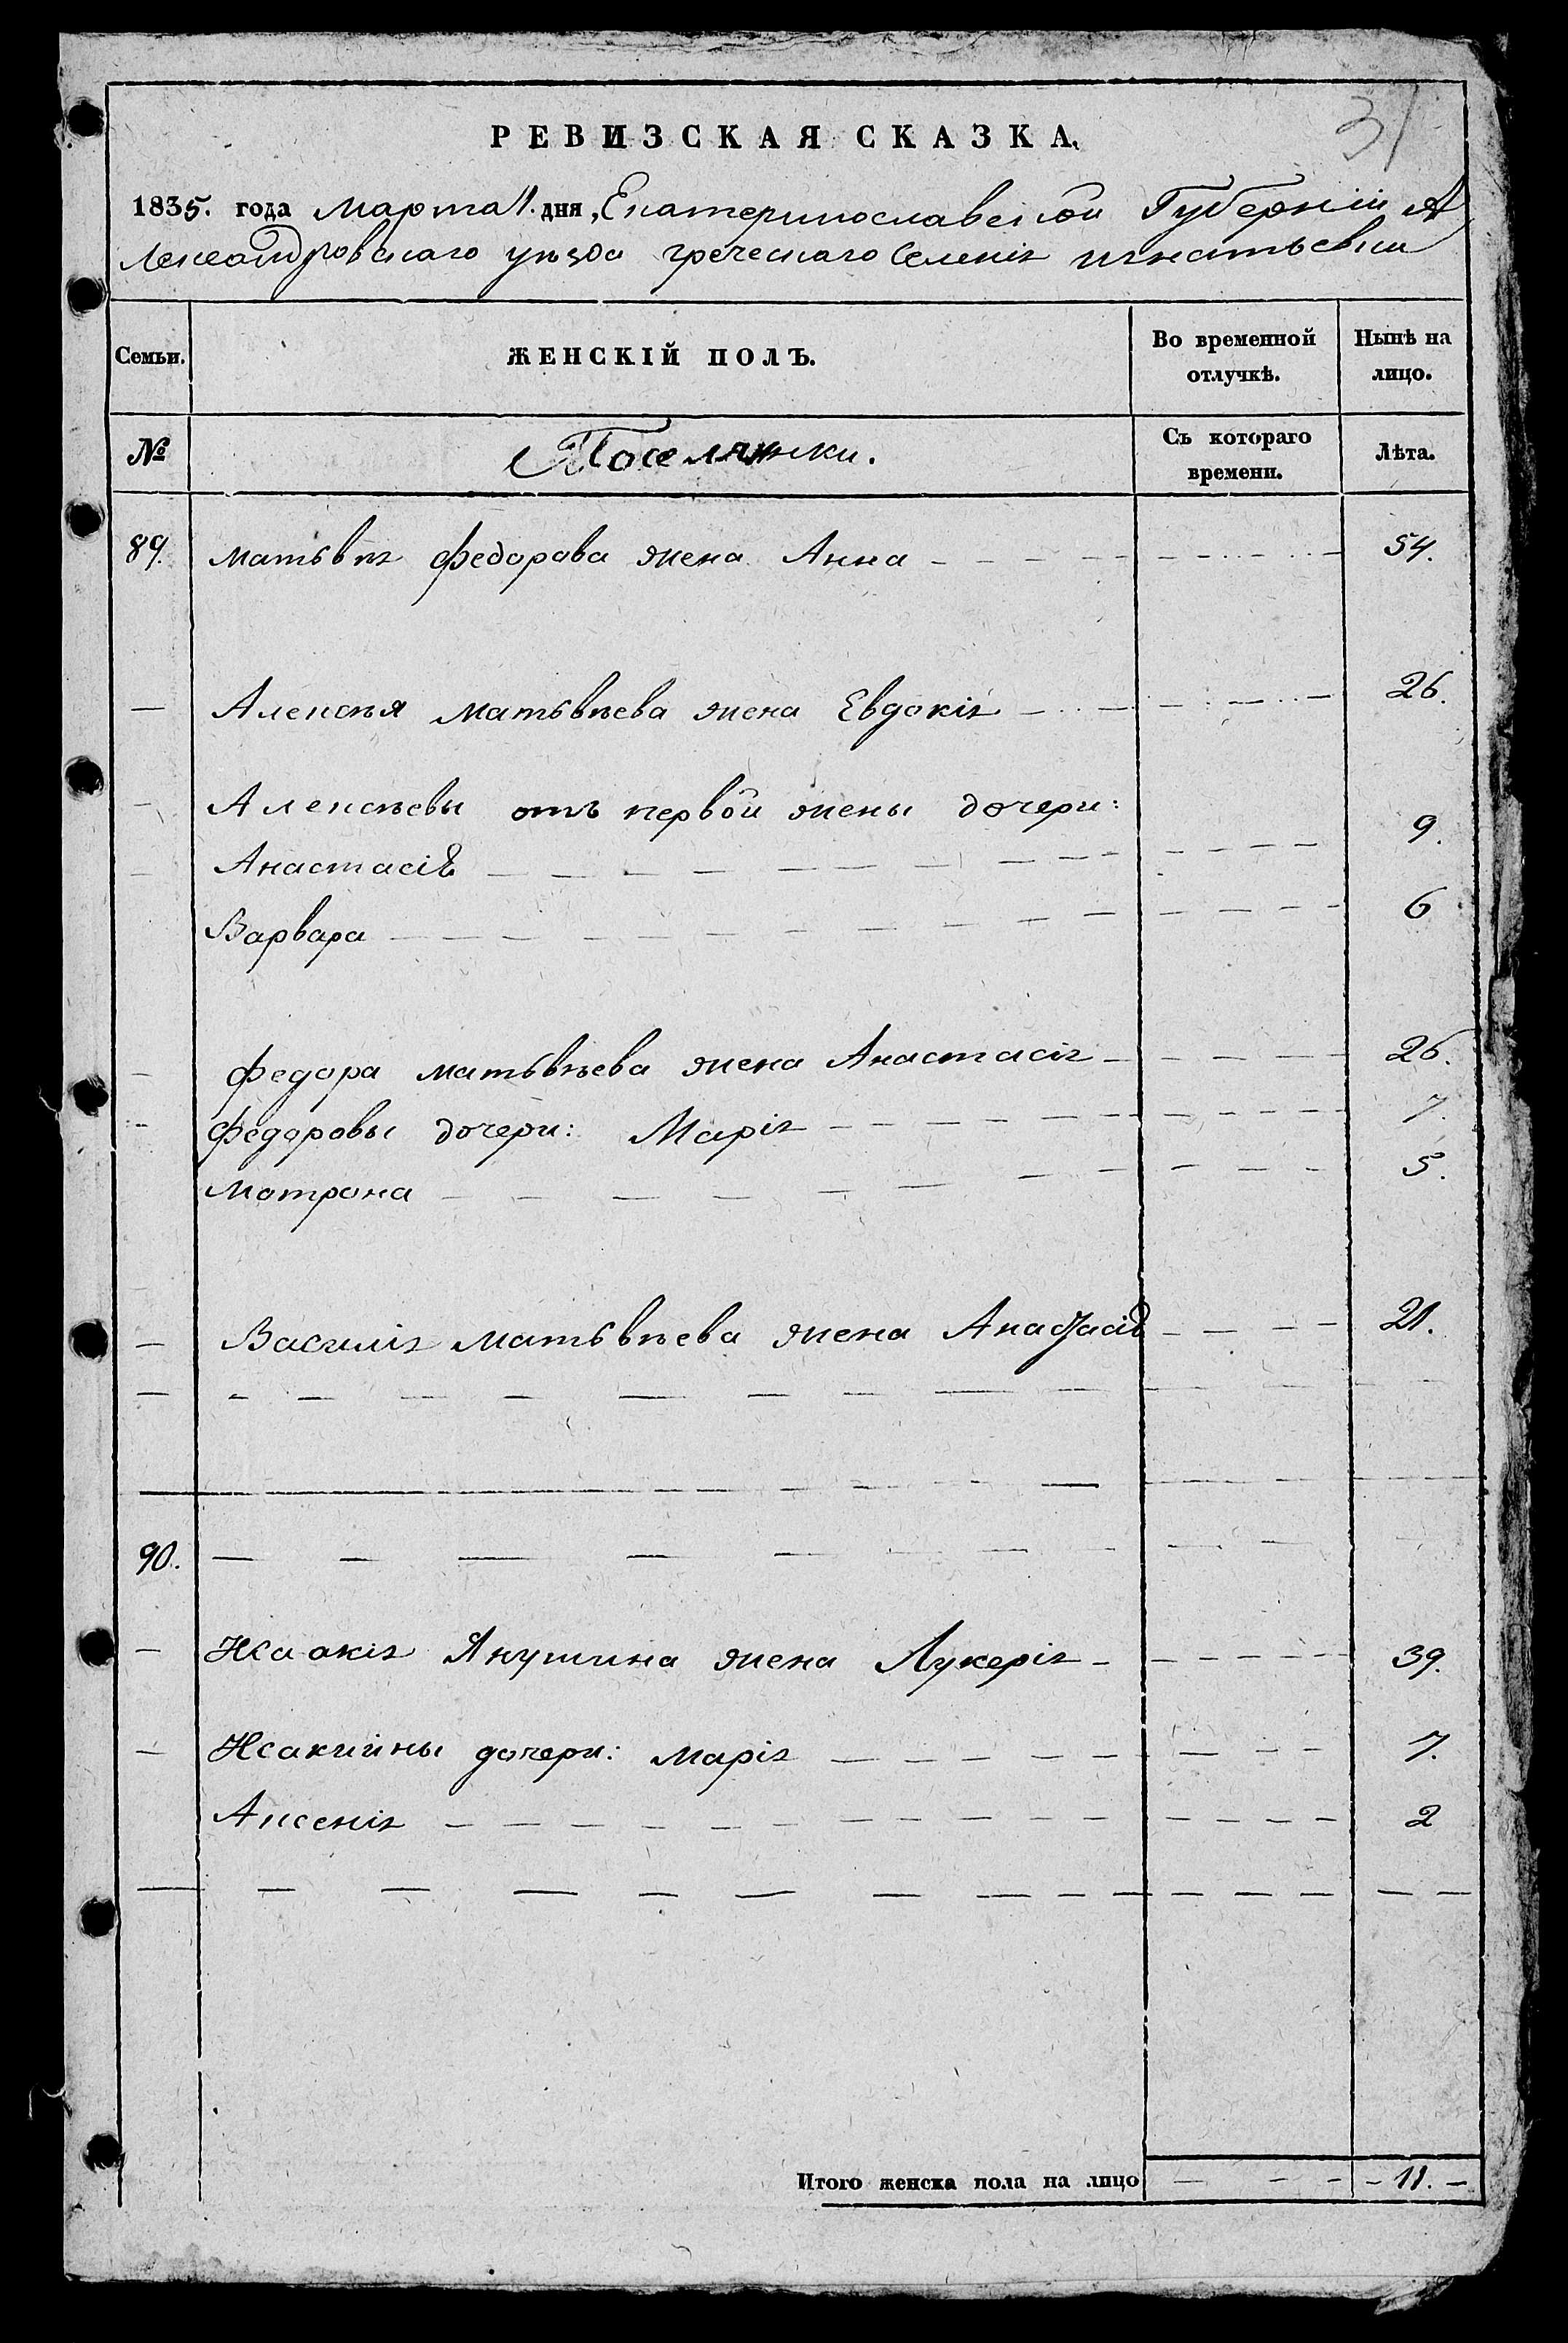 31
РЕВИЗСКАЯ СКАЗКА.
1835. года Марта 11. дня, Екатеринославской Губерніи А
лександровскаго уѣзда греческаго Селенія Игнатьевки
Семьи. ЖЕНСКІЙ ПОЛЪ. Во временной отлучкѣ. Нынѣ на лицо.
№ Поселянки. Съ котораго времени. Лѣта.
89. Матьвѣя Федорова жена Анна 54.
Алексѣя Матьвѣева жена Евдокія 26.
Алексѣевы отъ первой жены дочери:
Анастасія 9.
Варвара 6
Федора Матьвѣева жена Анастасія 26.
Федоровы дочери: Марія 7.
Мотрона 5.
Василія Матьвѣева жена Анастасія 21.
90.
Исаакія Янушина жена Лукерія 39.
Исакийны дочери: Марія 7.
Аксенія 2
Итого женска пола на лицо 11.